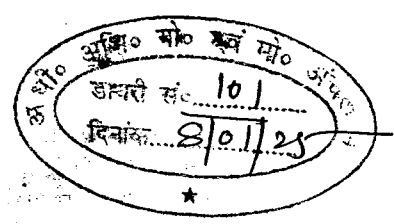 अधी० अभि० मो० एवं मो०
डायरी सं०........101
दिनांक....8/01/25